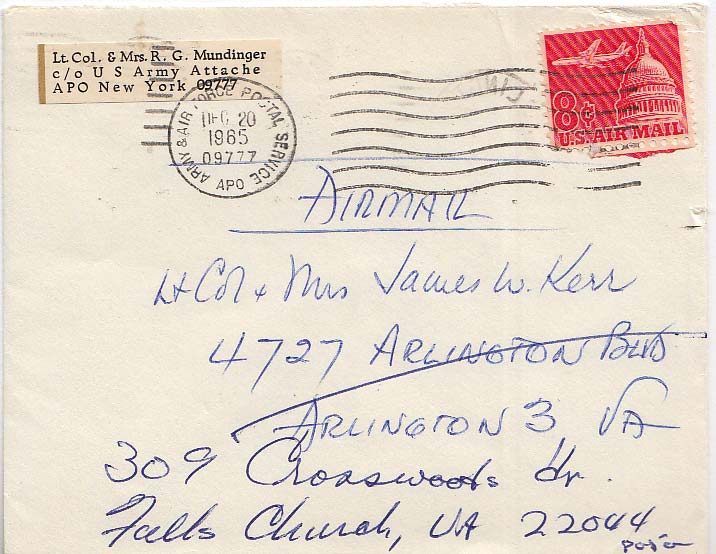 Lt. Col. & Mrs. R. G. Mundinger
c/o U S Army Attache
APO New York 09777
ARMY & AIR FORCE POSTAL SERVICE
DEC 20
1965
09777
APO
8¢
U.S. AIR MAIL
AIRMAIL
Lt Col & Mrs James W. Kerr
4727 ARLINGTON BLVD
ARLINGTON 3 VA
309 Crosswoods Dr.
Falls Church, VA 22044